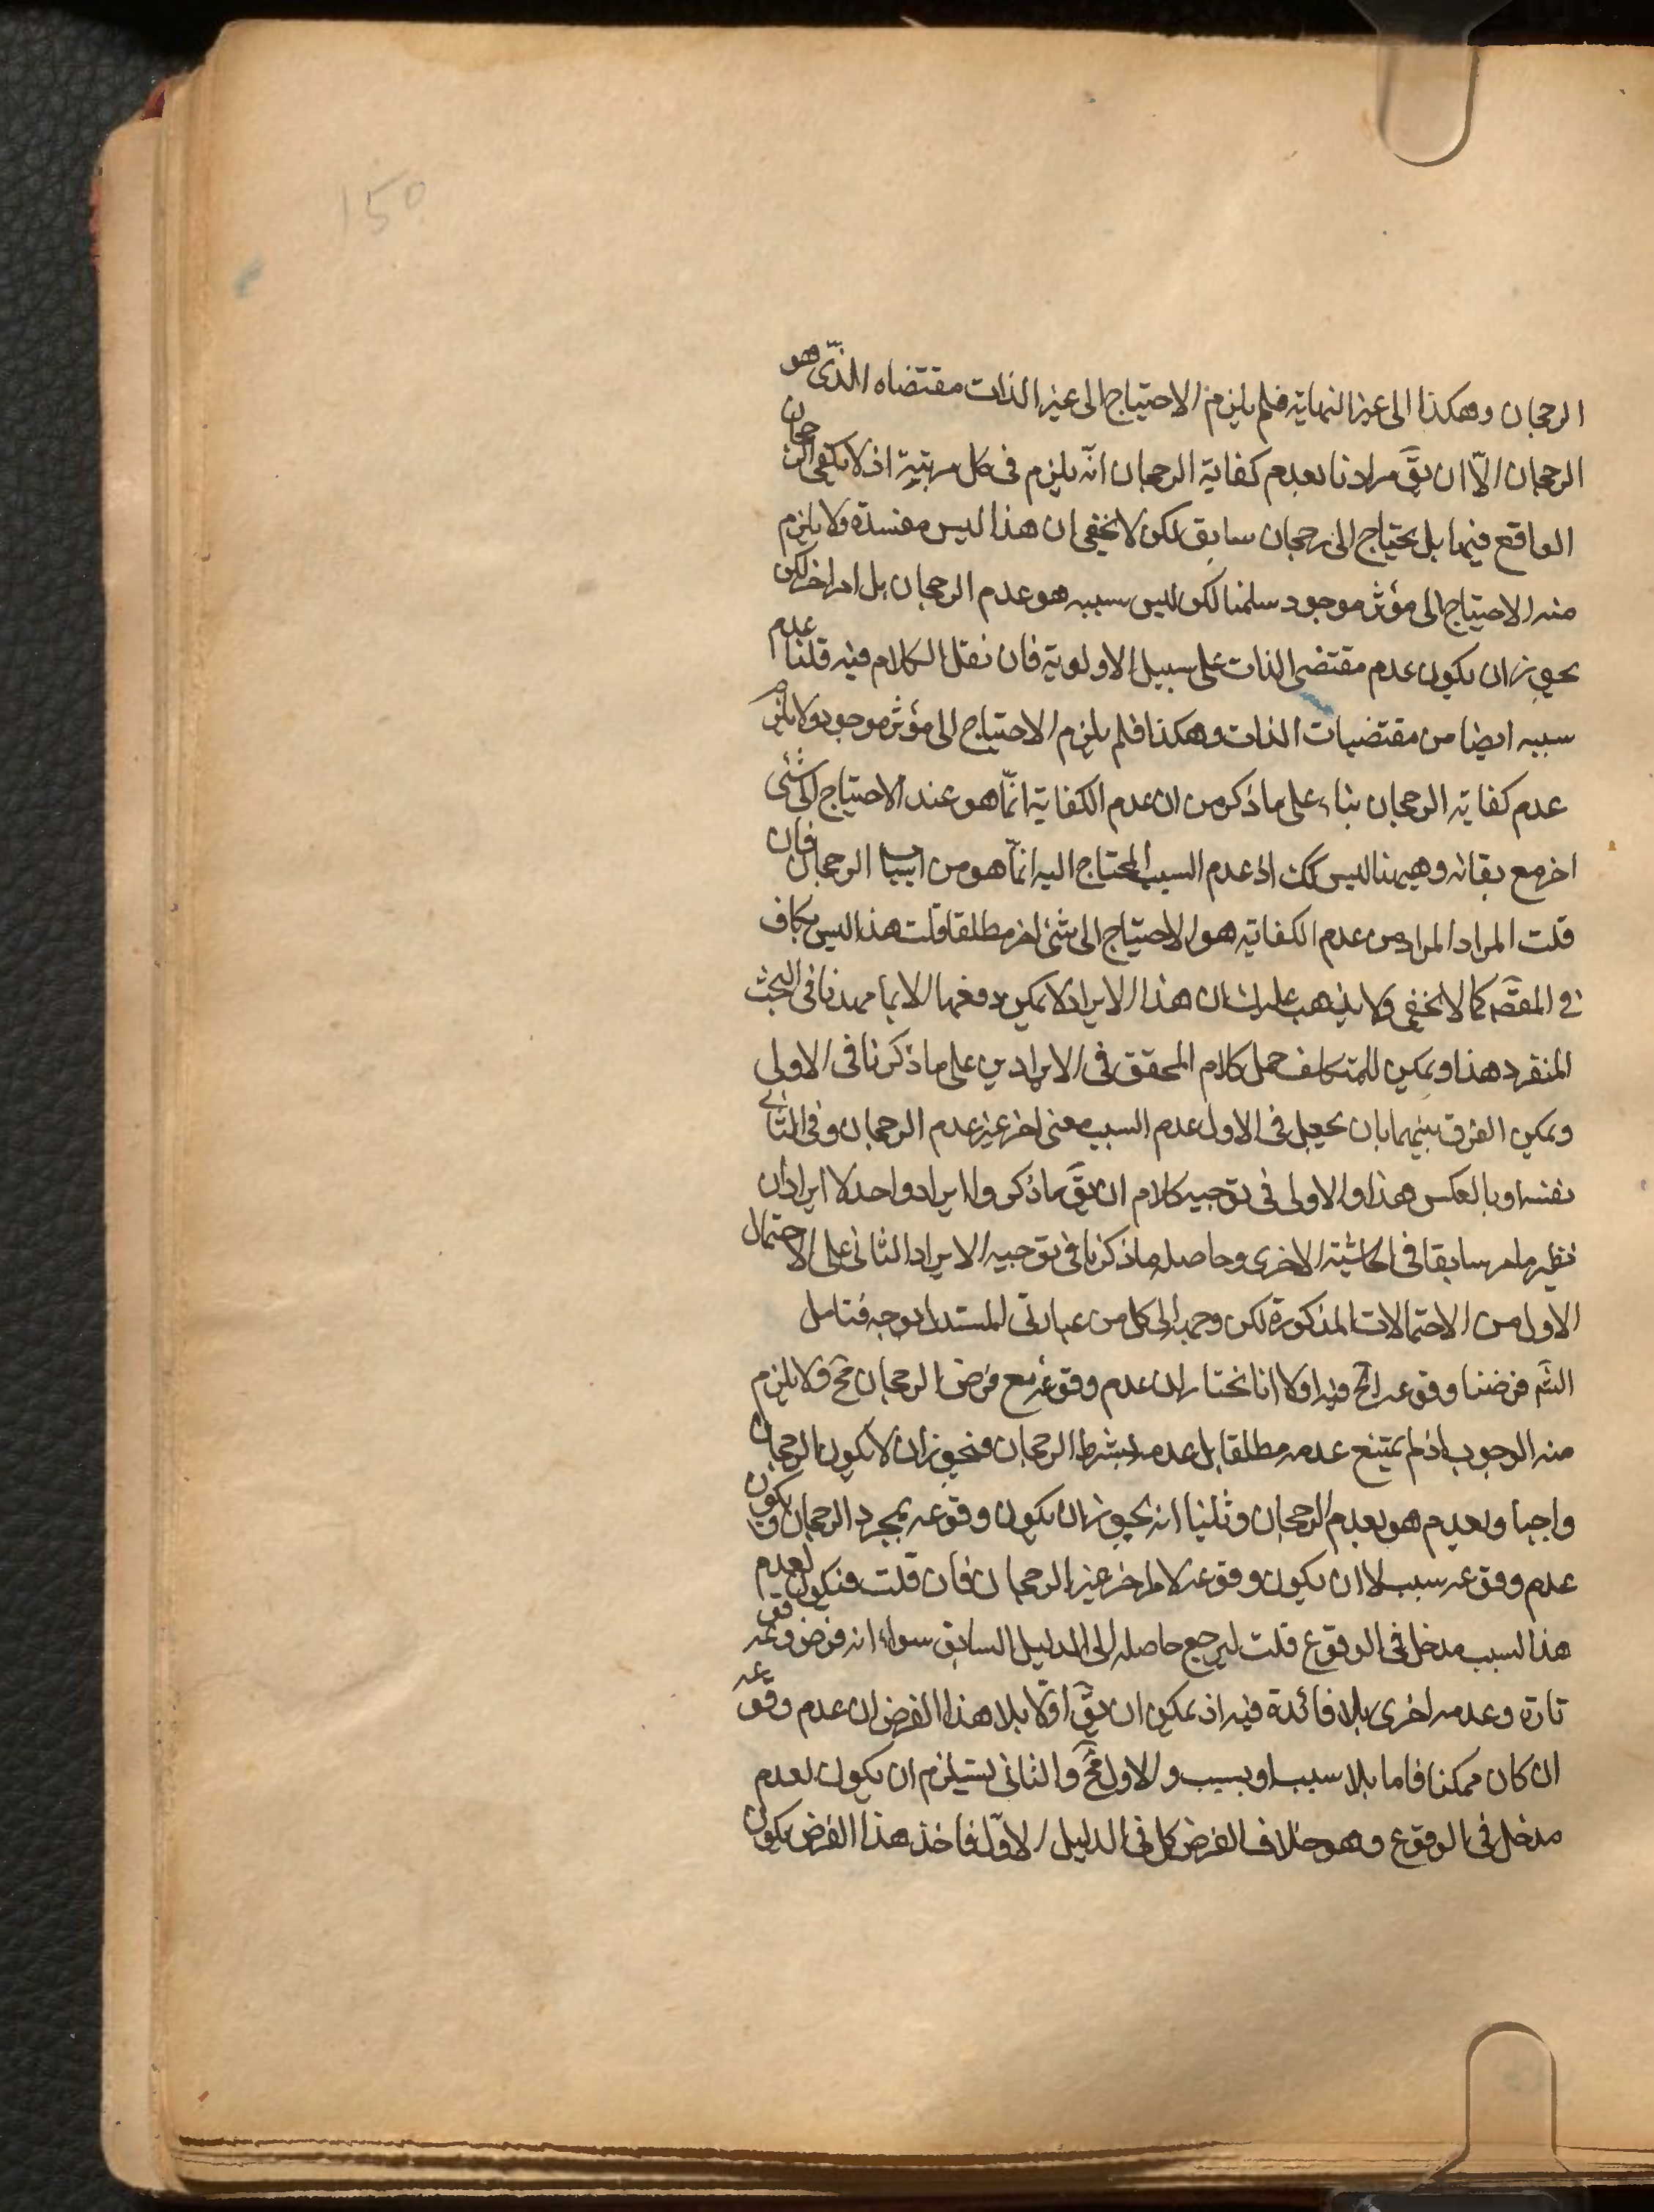 150
الرجحان وهكذا الى غير النهاية فلم يلزم الاحتياج الى غير الذات مقتضاه الذى هو
الرجحان الّا ان يقَ مرادنا بعدم كفاية الرجحان انّه يلزم فى كل مرتبة اذ لا يكفى الرجحان
الواقع فيها بل يحتاج الى رجحان سابق لكن لا يخفى ان هذا ليس مفسدة ولا يلزم
منه الاحتياج الى مؤثر موجود سلمنا لكن ليس سببه هو عدم الرجحان بل امر اخر لكن
يجوز ان يكون عدم مقتضى الذات على سبيل الاولوية فان نقل الكلام فيه قلنا عدم
سببه ايضا من مقتضيات الذات وهكذا فلم يلزم الاحتياج الى مؤثر موجود ولا يلزم
عدم كفاية الرجحان بناء على ما ذكر من ان عدم الكفاية انّما هو عند الاحتياج الى شئ
اخر مع بقائه وهيهنا ليس كك اذ عدم السبب المحتاج اليه انّما هو من اسباب الرجحان فان
قلت المراد المراد من عدم الكفاية هو الاحتياج الى شئ اخر مطلقا قلت هذا ليس بكاف
فى المقصَ كما لا يخفى ولا يذهب عليك ان هذا الايراد لا يمكن دفعها الا بما مهدنا فى البحث
المنفرد هذا ويمكن للمتكلف حمل كلام المحقق فى الايرادين على ما ذكرنا فى الاولى
ويمكن الفرق بينهما بان يجعل فى الاول عدم السبب معنى اخر غير عدم الرجحان وفى الثانى
نفسه او بالعكس هذا والاولى فى توجيه كلام ان يقَ ما ذكر والايراد واحد لا ايرادان
نظير ما مر سابقا فى الحاشية الاخرى وحاصله ما ذكرنا فى توجيه الايراد الثانى على الاحتمال
الاول من الاحتمالات المذكورة لكن وجه الى كل من عبارتى المستدل بوجه فتامل
الشَم فرضنا وقوعه الخ فيه اولا انا نختار ان عدم وقوعه مع فرض الرجحان مح ولا يلزم
منه الوجوب اذ لم يمتنع عدمه مطلقا بل عدمه بشرط الرجحان فيجوز ان لا يكون الرجحان
واجبا وبعدم هو بعدم الرجحان وثانيا انه يجوز ان يكون وقوعه بمجرد الرجحان ويكون
عدم وقوعه سبب لا ان يكون وقوعه لامر اخر غير الرجحان فان قلت فيكون لعدم
هذا السبب مدخل فى الوقوع قلت ليرجع حاصله الى الدليل السابق سواء انه فرض وقوعه
تارة وعدمه اخرى بلا فائدة فيه اذ يمكن ان يقَ اوّلا بلا هذا الفرض ان عدم وقوعه
ان كان ممكنا فاما بلا سبب او بسبب والاول محَ والثانى يستلزم ان يكون لعدم
مدخل فى الوقوع وهو خلاف الفرض كل فى الدليل الاوّل فاخذ هذا الفرض يكون